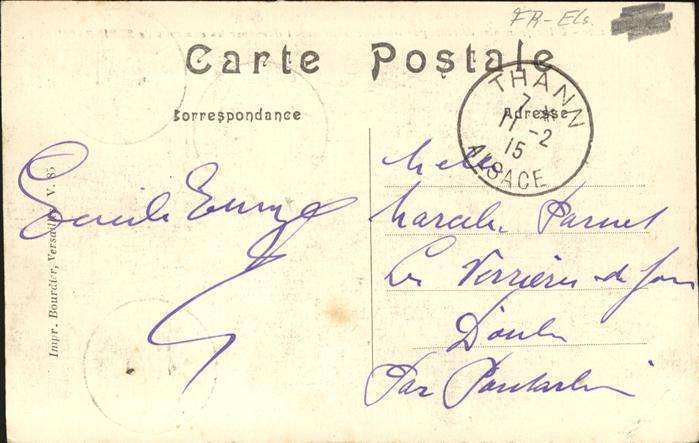 FR-Els.
Carte Postale
Correspondance
Adresse
THANN
7 *
11 -2
15
ALSACE
Melle
Marcelle Parnet
Les Verrières-de-Joux
Doubs
Par Pontarlier
Impr. Bourdier, Versailles V. S.